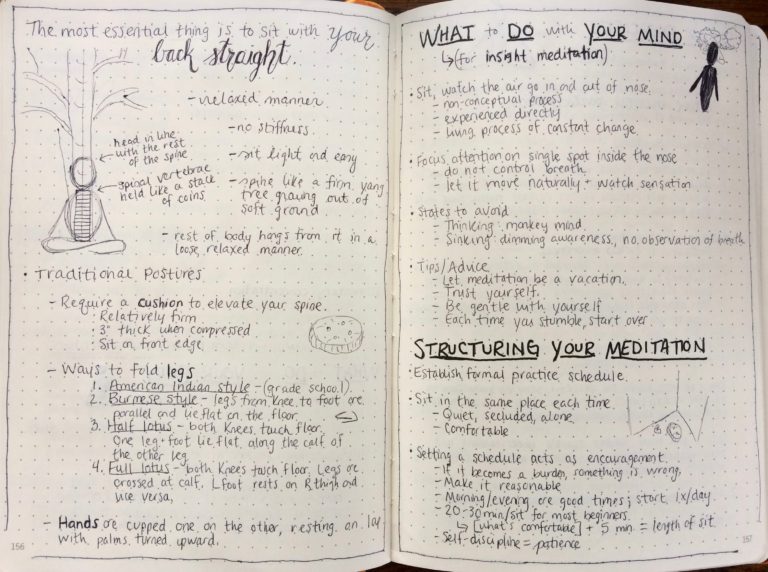 The most essential thing is to sit with your
back straight.
- relaxed manner
- no stiffness
head in line
with the rest
of the spine
- sit light and easy
spinal vertebrae
held like a stack
of coins
- spine like a firm young
tree growing out of
soft ground.
- rest of body hangs from it in a
loose, relaxed manner.
• Traditional Postures
- Require a cushion to elevate your spine.
• Relatively firm
• 3" thick when compressed
• Sit on front edge
- Ways to fold legs
1. American Indian style - (grade school).
2. Burmese style - legs from knee to foot are
parallel and lie flat on the floor.
3. Half lotus - both knees touch floor.
One leg + foot lie flat along the calf of
the other leg
4. Full lotus - both knees touch floor. Legs are
crossed at calf. L foot rests on R thigh and
vice versa.
- Hands are cupped one on the other, resting on lap
with palms turned upward.
156
WHAT to DO with YOUR MIND
↳ (for insight meditation)
• Sit, watch the air go in and out of nose.
- non-conceptual process
- experienced directly
- living process of constant change.
• Focus attention on single spot inside the nose
- do not control breath
- let it move naturally + watch sensation
• States to avoid
- Thinking: monkey mind
- Sinking: dimming awareness, no observation of breath
• Tips/Advice
- Let meditation be a vacation.
- Trust yourself.
- Be gentle with yourself
- Each time you stumble, start over
STRUCTURING YOUR MEDITATION
• Establish formal practice schedule.
• Sit in the same place each time.
- Quiet, secluded, alone
- Comfortable
• Setting a schedule acts as encouragement.
- If it becomes a burden, something is wrong.
- Make it reasonable
- Morning/evening are good times; start 1x/day
- 20-30 min/sit for most beginners
↳ [what's comfortable] + 5 min = length of sit
- Self-discipline = patience
157